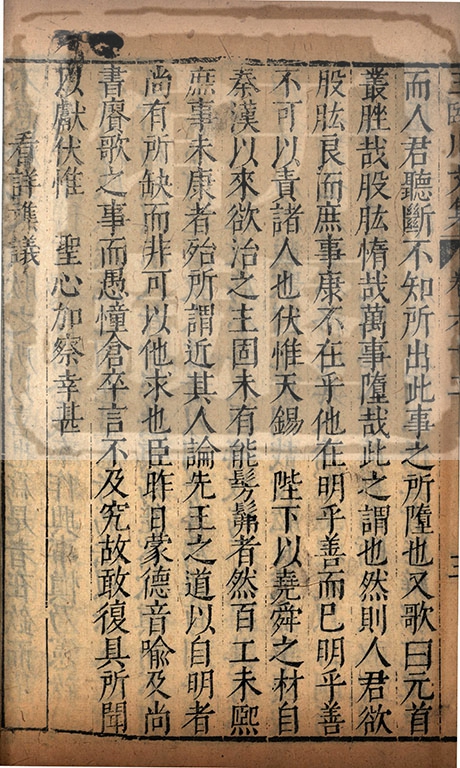 而人君聽斷不知所出此事之所隳也又歌曰元首
叢脞哉股肱惰哉萬事隳哉此之謂也然則人君欲
股肱良而庶事康不在乎他在明乎善而已明乎善
不可以責諸人也伏惟天錫 陛下以堯舜之材自
秦漢以來欲治之主固未有能髣髴者然百工未熙
庶事未康者殆所謂近其人論先王之道以自明者
尚有所缺而非可以他求也臣昨日蒙德音喻及尚
書賡歌之事而愚憧倉卒言不及究故敢復具所聞
以獻伏惟 聖心加察幸甚
看詳雜議